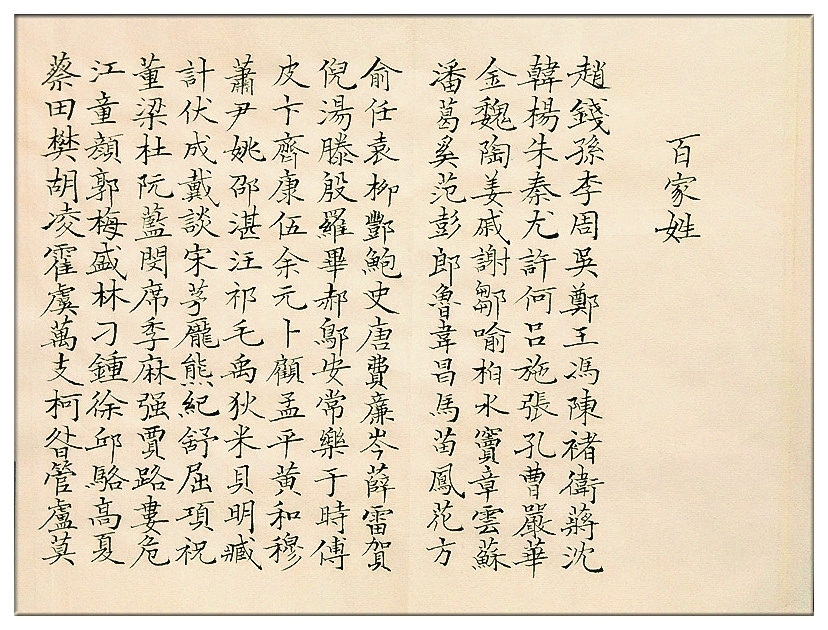 百家姓
趙錢孫李周吳鄭王馮陳褚衛蔣沈
韓楊朱秦尤許何呂施張孔曹嚴華
金魏陶姜戚謝鄒喻柏水竇章雲蘇
潘葛奚范彭郎魯韋昌馬苗鳳花方
俞任袁柳酆鮑史唐費廉岑薛雷賀
倪湯滕殷羅畢郝鄔安常樂于時傅
皮卞齊康伍余元卜顧孟平黃和穆
蕭尹姚邵湛汪祁毛禹狄米貝明臧
計伏成戴談宋茅龐熊紀舒屈項祝
董梁杜阮藍閔席季麻强賈路婁危
江童顏郭梅盛林刁鍾徐邱駱高夏
蔡田樊胡凌霍虞萬支柯昝管盧莫